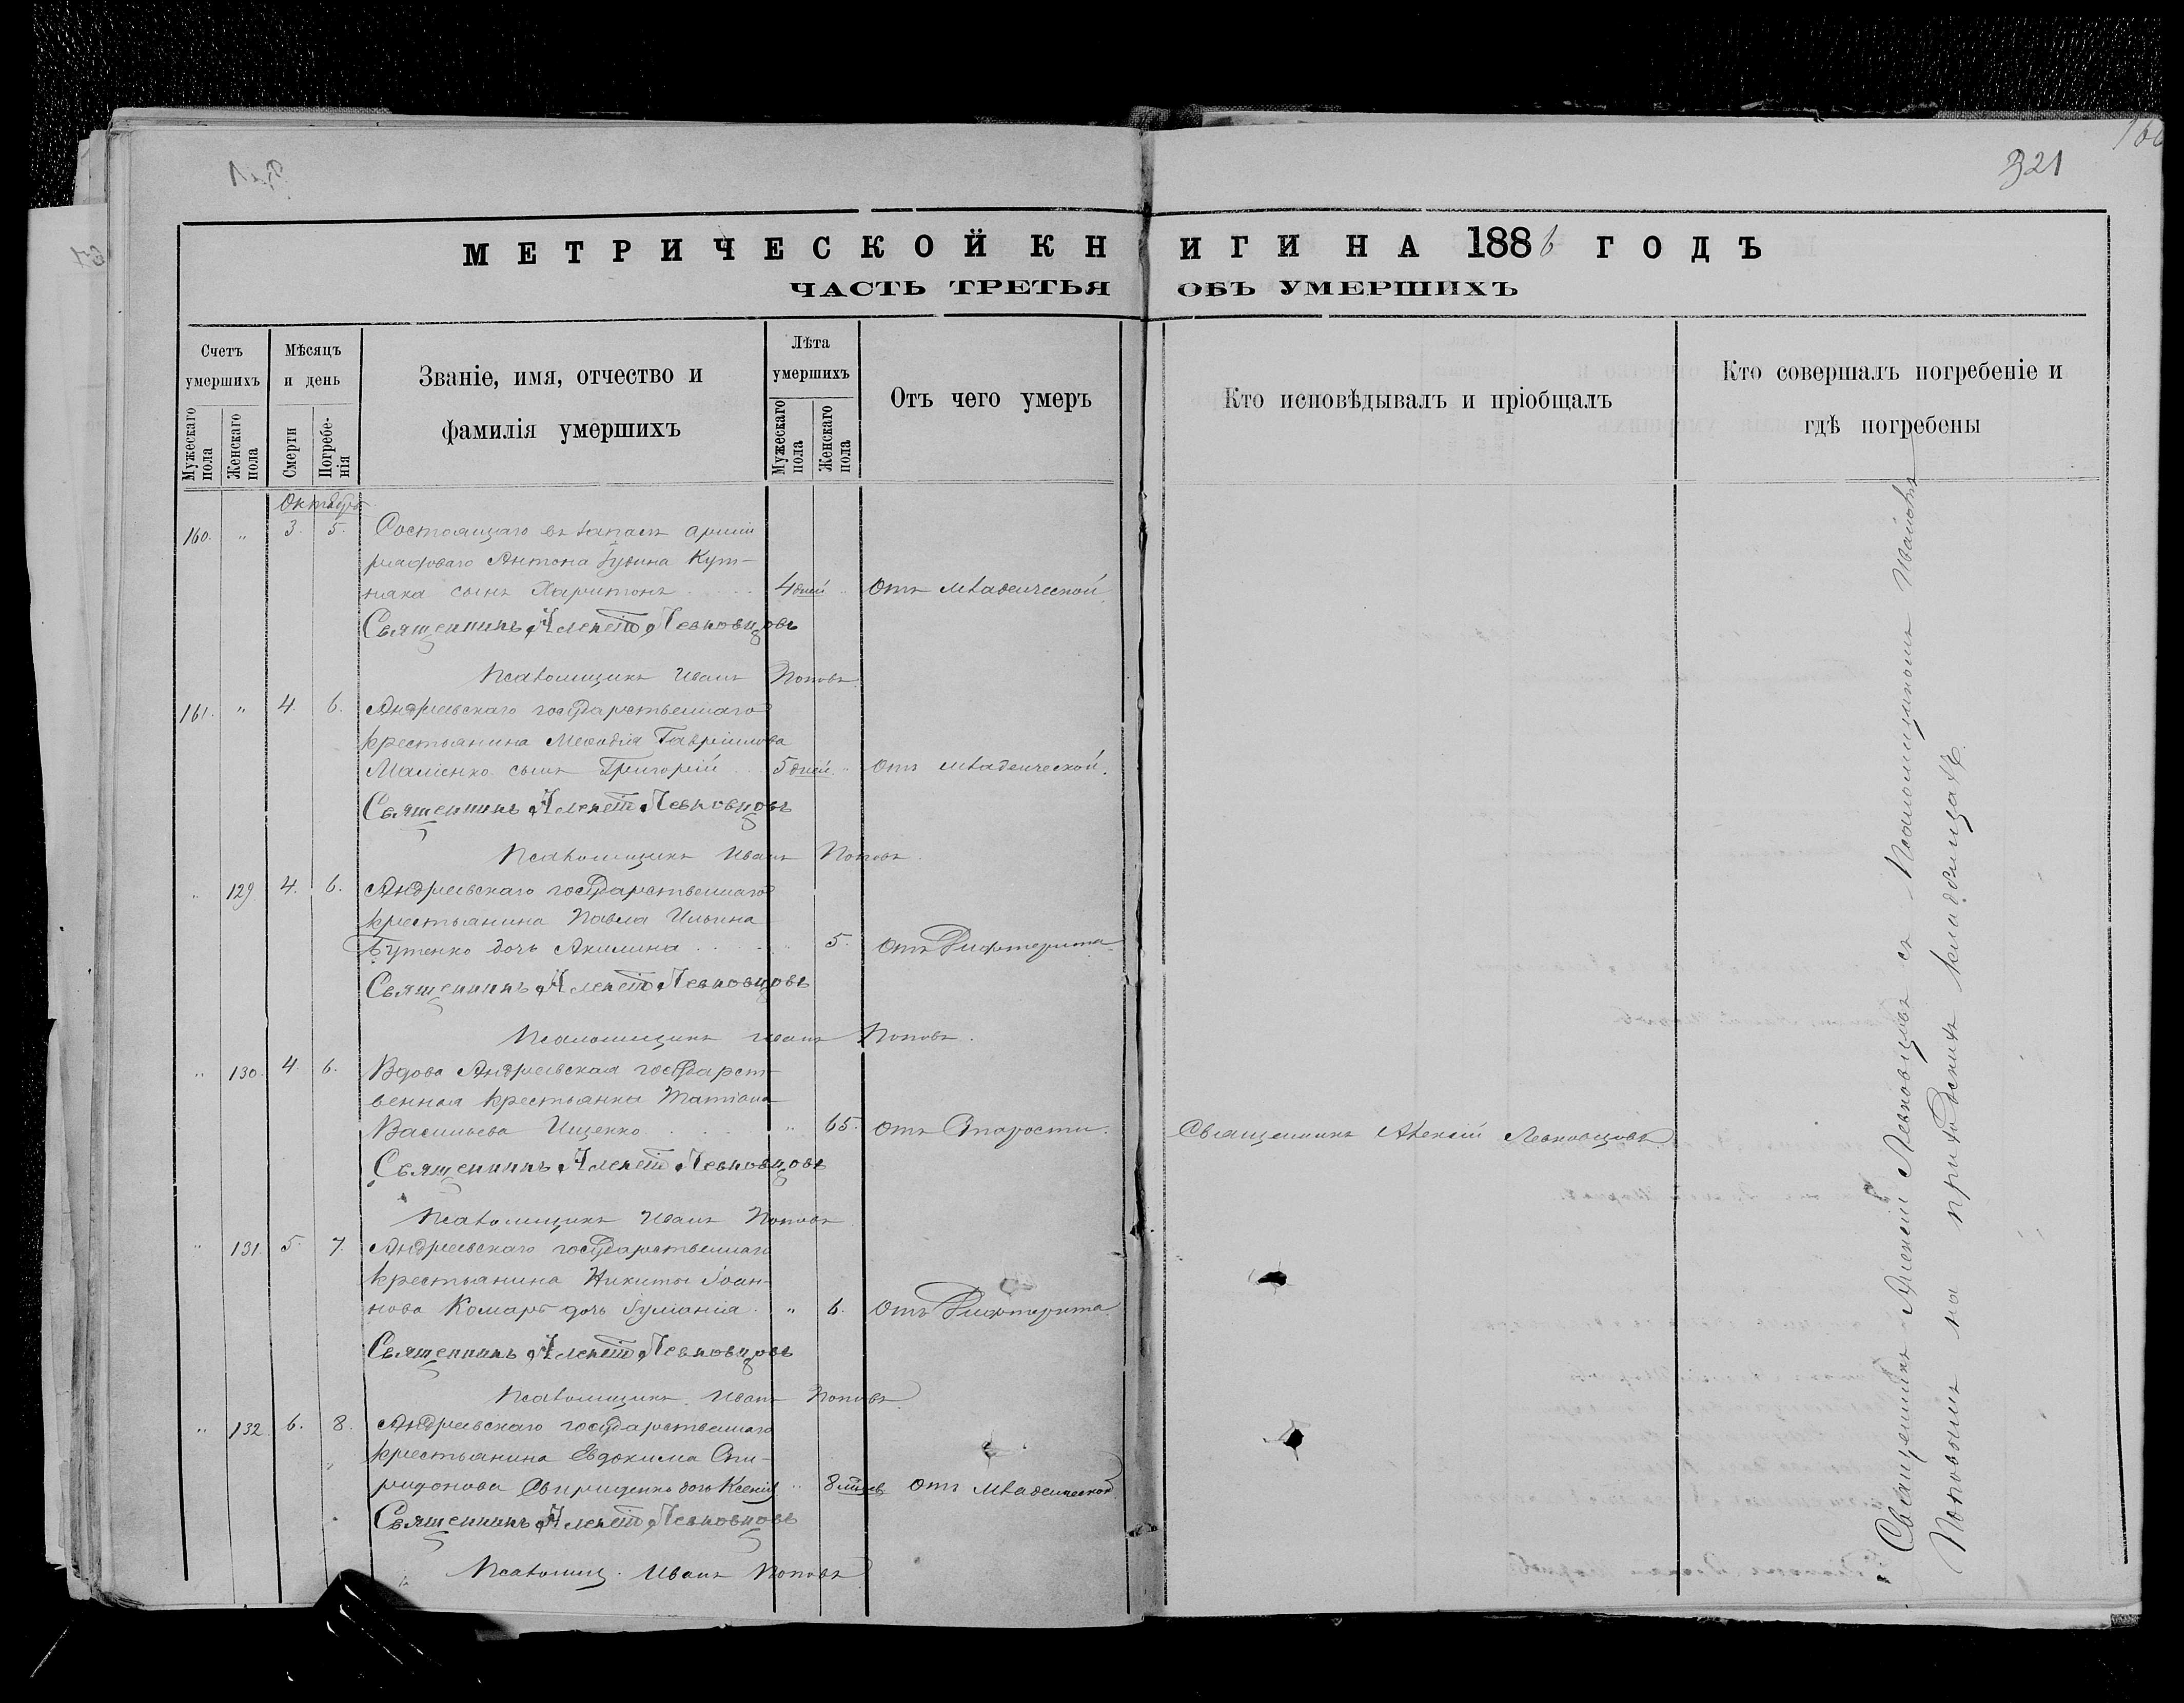 321
МЕТРИЧЕСКОЙ КНИГИ НА 1886 ГОДЪ
ЧАСТЬ ТРЕТЬЯ ОБЪ УМЕРШИХЪ
Счетъ умершихъ
Мужескаго пола
Женскаго пола
Мѣсяцъ и день
Смерти
Погребенія
Званіе, имя, отчество и
фамилія умершихъ
Лѣта умершихъ
Мужескаго пола
Женскаго пола
Отъ чего умеръ
Кто исповѣдывалъ и пріобщалъ
Кто совершалъ погребеніе и
гдѣ погребены
Октябрь
160. " 3. 5. Состоящаго въ запасѣ арміи
рядоваго Антона
няка сынъ Харитонъ 4 дней " Отъ младенческой
Священникъ Алексій Левковцовъ
Псаломщикъ Иванъ Поповъ.
161. " 4. 6. Андреевскаго государственнаго
крестьянина Меѳодія Гавріилова
Маліенко сынъ Григорій 5 дней. " Отъ младенческой.
Священникъ Алексій Левковцовъ
Псаломщикъ Иванъ Поповъ.
" 129 4. 6. Андреевскаго государственнаго
крестьянина Павла Ильина
Бутенко дочь Акилина " 5. Отъ Дифтерита
Священникъ Алексій Левковцовъ
Псаломщикъ Иванъ Поповъ.
" 130. 4 6. Вдова Андреевская государст-
венная крестьянка Татіана
Васильева Ищенко " 65. Отъ Старости. Священникъ Алексій Левковцовъ
Священникъ Алексій Левковцовъ
Псаломщикъ Иванъ Поповъ
" 131. 5. 7. Андреевскаго государственнаго
крестьянина Никиты Іоан-
нова Комаръ дочь Іуліанія " 6. Отъ Дифтерита
Священникъ Алексій Левковцовъ
Псаломщикъ Иванъ Поповъ
" 132. 6. 8. Андреевскаго государственнаго
крестьянина Евдокима Спи-
ридонова Свириденко дочь Ксенія " 8 Отъ младенческой
Священникъ Алексій Левковцовъ
Псаломщ. Иванъ Поповъ
Священникъ Алексій Левковцовъ съ Псаломщикомъ Иваномъ
Поповымъ на приходскихъ кладбищахъ.